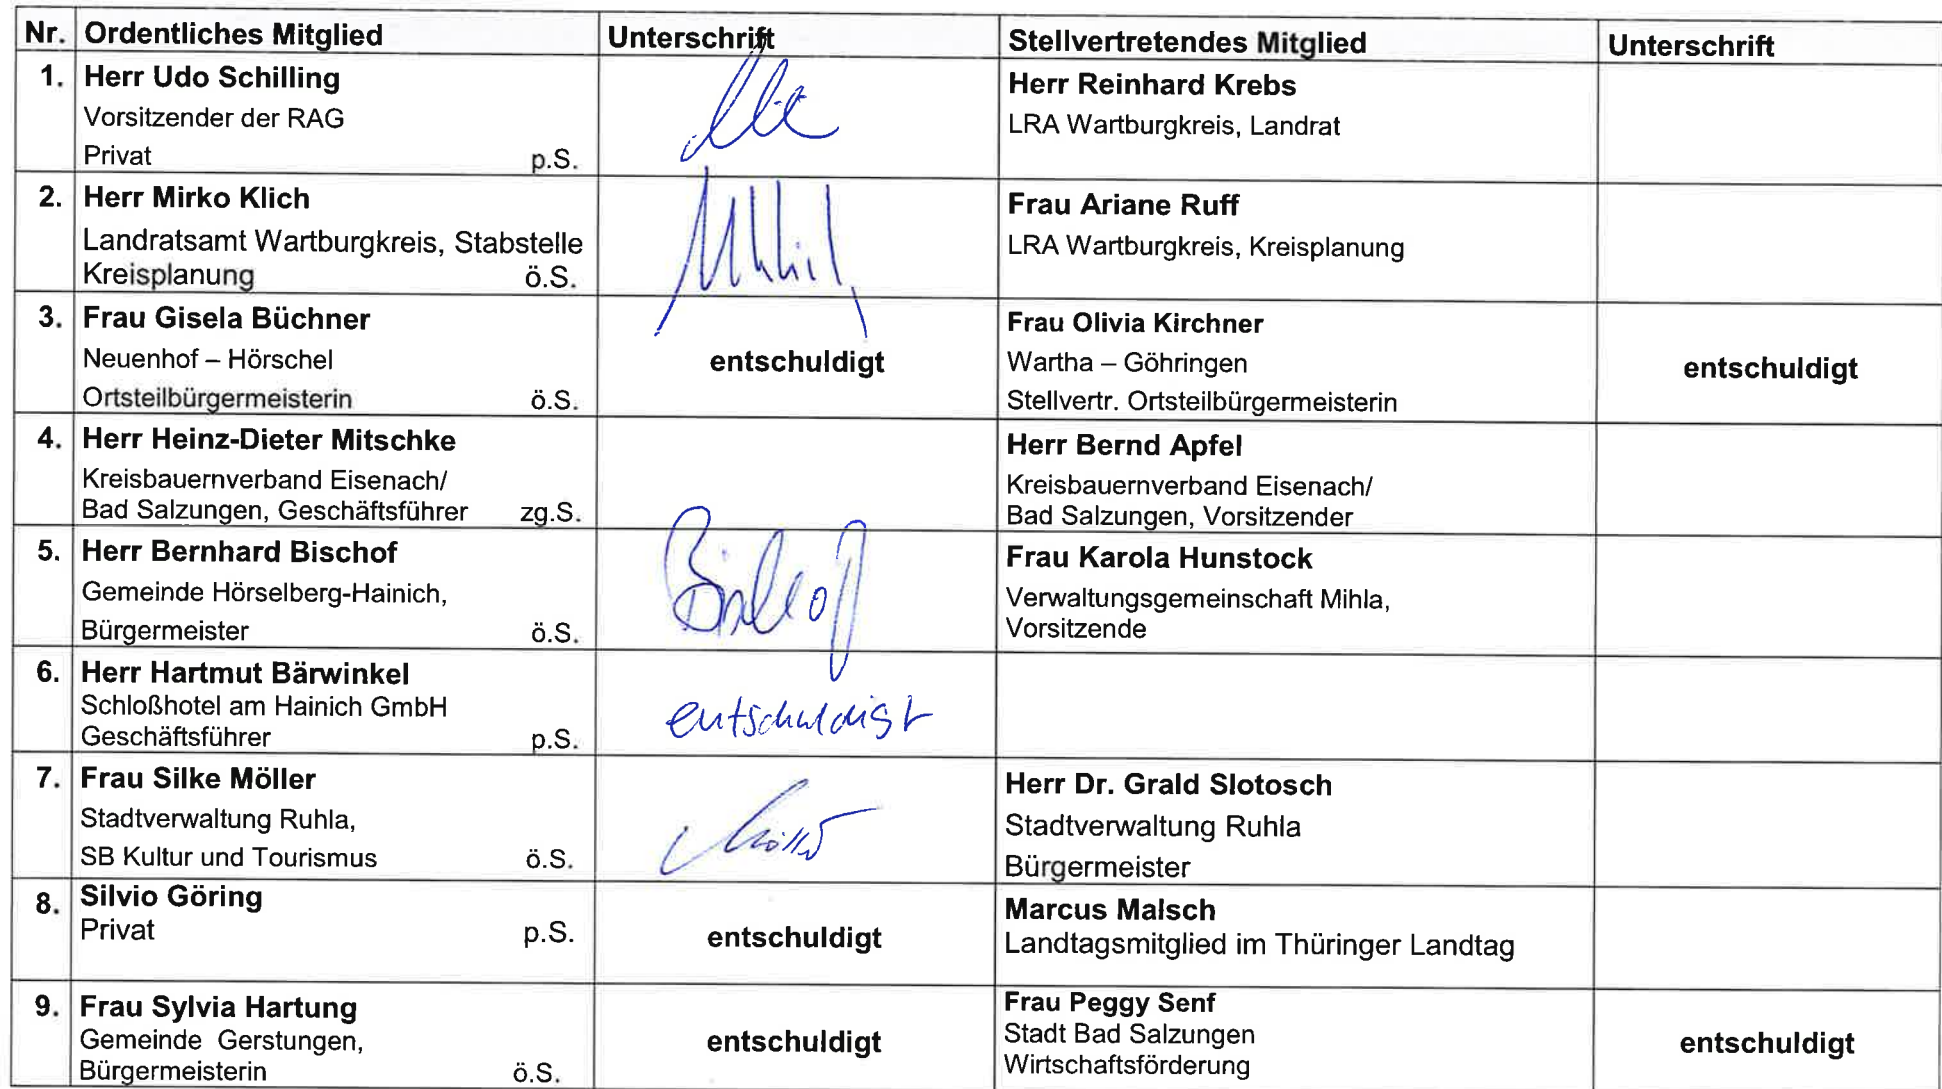 Nr. Ordentliches Mitglied Unterschrift Stellvertretendes Mitglied Unterschrift
1. Herr Udo Schilling
Vorsitzender der RAG
Privat p.S.
Herr Reinhard Krebs
LRA Wartburgkreis, Landrat
2. Herr Mirko Klich
Landratsamt Wartburgkreis, Stabstelle
Kreisplanung ö.S.
Frau Ariane Ruff
LRA Wartburgkreis, Kreisplanung
3. Frau Gisela Büchner
Neuenhof – Hörschel
Ortsteilbürgermeisterin ö.S.
entschuldigt
Frau Olivia Kirchner
Wartha – Göhringen
Stellvertr. Ortsteilbürgermeisterin
entschuldigt
4. Herr Heinz-Dieter Mitschke
Kreisbauernverband Eisenach/
Bad Salzungen, Geschäftsführer zg.S.
Herr Bernd Apfel
Kreisbauernverband Eisenach/
Bad Salzungen, Vorsitzender
5. Herr Bernhard Bischof
Gemeinde Hörselberg-Hainich,
Bürgermeister ö.S.
Bischof
Frau Karola Hunstock
Verwaltungsgemeinschaft Mihla,
Vorsitzende
6. Herr Hartmut Bärwinkel
Schloßhotel am Hainich GmbH
Geschäftsführer p.S.
entschuldigt
7. Frau Silke Möller
Stadtverwaltung Ruhla,
SB Kultur und Tourismus ö.S.
Möller
Herr Dr. Grald Slotosch
Stadtverwaltung Ruhla
Bürgermeister
8. Silvio Göring
Privat p.S.
entschuldigt
Marcus Malsch
Landtagsmitglied im Thüringer Landtag
9. Frau Sylvia Hartung
Gemeinde Gerstungen,
Bürgermeisterin ö.S.
entschuldigt
Frau Peggy Senf
Stadt Bad Salzungen
Wirtschaftsförderung
entschuldigt